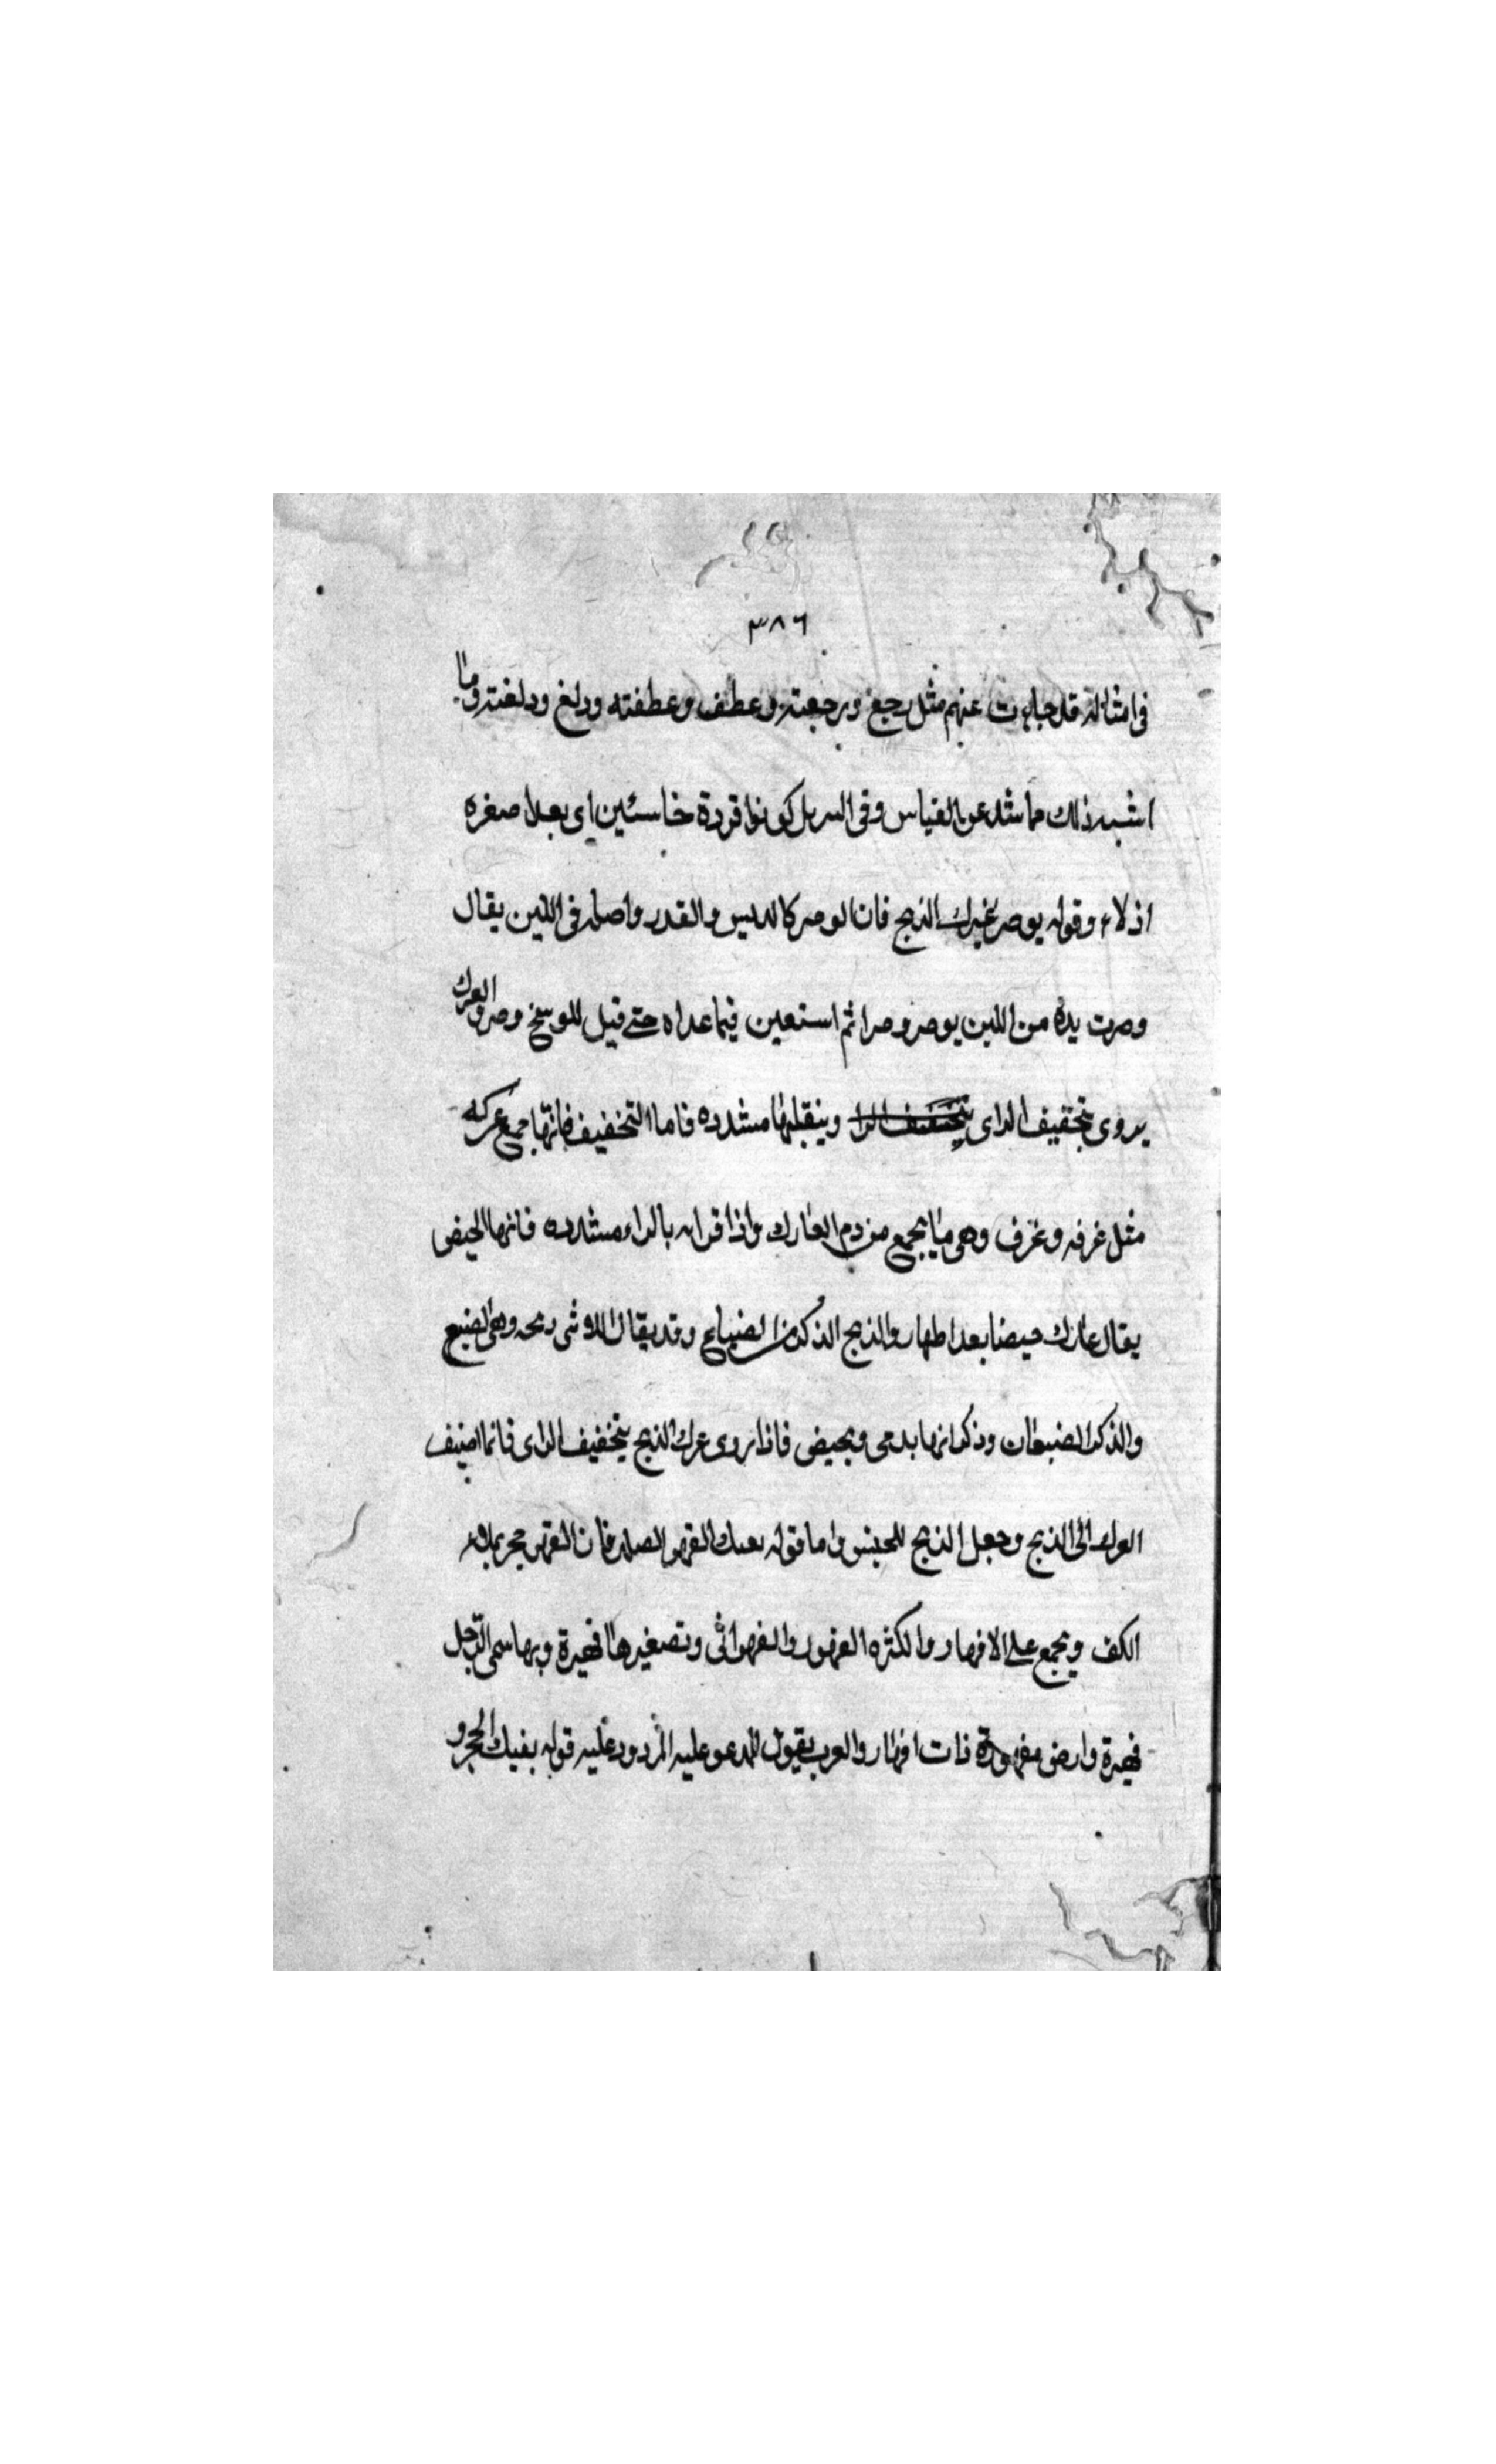 ٣٨٦
في امثاله قد جاءت عنهم مثل رجع ورجعته وعطف وعطفته ودلغ ودلغته وما
اشبه ذلك مما شد عن القياس وفي كونوا قردة خاسئين اي بعدا صغره
اذلاء وقوله يوصر غبرك الذبح فان الوصر كالدبس والقدر واصله في اللبن يقال
وصرت يده من اللبن يوصر وصرا ثم استعين فيما عداه حتى قيل للوسخ وصر والعرك
يروى بتخفيف الراى وينقبلها مشدده فاما التخفيف فانها جمع عركه
مثل غرفه وغرف وهي ما يجمع من دم العارك واذا قرانه بالراء مشدده فانها الحيض
يقال عارك حيضا بعد اطهار والذبح الذكر من الضباع وقد يقال للانثى ذبحه وهي الضبع
والذكر الضبعان وذكر انها بدمى وتحيض فاذا روى عرك الذبح بتخفيف الراى فانما اضيف
العرك الى الذبح وجعل الذبح للجنس واما قوله الفهر الصلد فان الفهر حجر يملاء
الكف ويجمع على الافهار والكثره الفهور والفهر انثى وتصغيرها فهيرة وبها سمى الرجل
فهيرة وارض مفهودة ذات افهار والعرب يقول للمدعو عليه المردود عليه قوله بفيك الحجر و